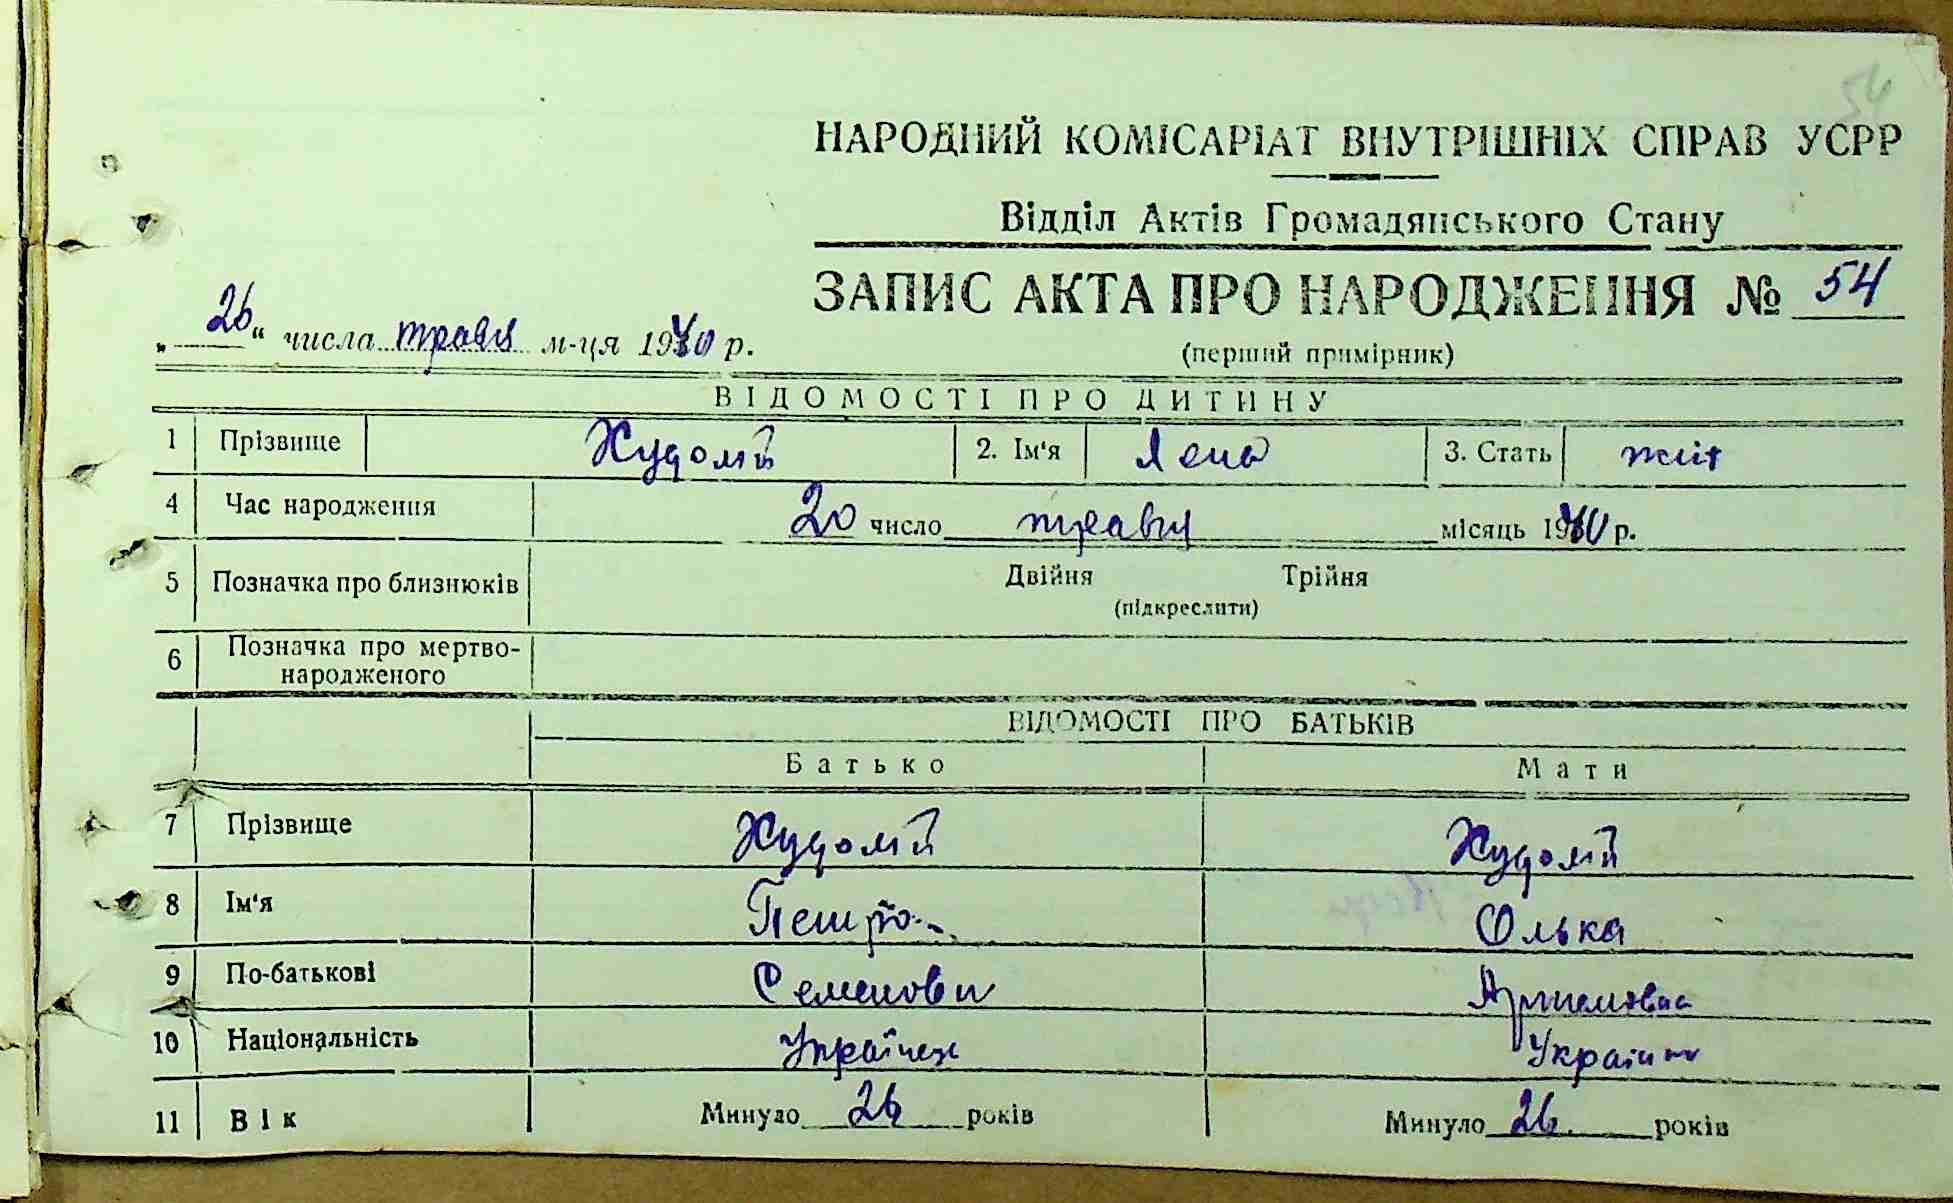 54
НАРОДНИЙ КОМІСАРІАТ ВНУТРІШНІХ СПРАВ УСРР
Відділ Актів Громадянського Стану
ЗАПИС АКТА ПРО НАРОДЖЕННЯ № 54
„26“ числа травня м-ця 1940 р.
(перший примірник)
ВІДОМОСТІ ПРО ДИТИНУ
1 Прізвище Худолій 2. Ім'я Лена 3. Стать жін
4 Час народження 20 число травня місяць 1940 р.
5 Позначка про близнюків Двійня Трійня
(підкреслити)
6 Позначка про мертво-
народженого
ВІДОМОСТІ ПРО БАТЬКІВ
Батько Мати
7 Прізвище Худолій Худолій
8 Ім'я Петро Олька
9 По-батькові Семенови Артемовна
10 Національність Українец Украін
11 Вік Минуло 26 років Минуло 26 років